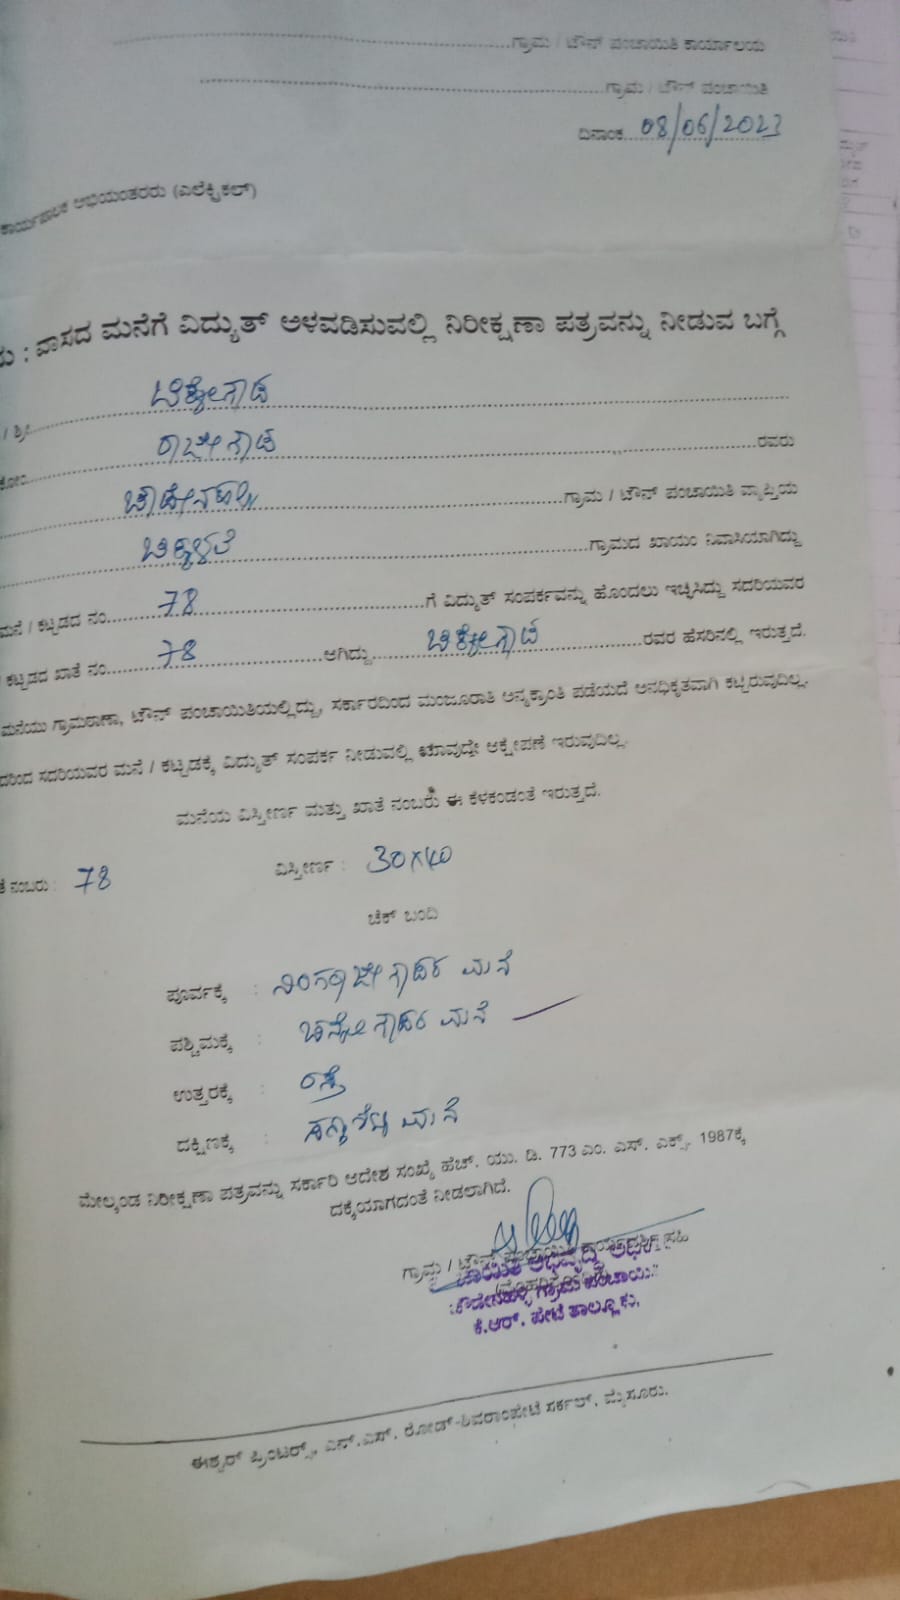 ಗ್ರಾಮ / ಟೌನ್ ಪಂಚಾಯಿತಿ ಕಾರ್ಯಾಲಯ
ಗ್ರಾಮ / ಟೌನ್ ಪಂಚಾಯಿತಿ
ದಿನಾಂಕ 08/06/2023
ಕಾರ್ಯಪಾಲಕ ಅಭಿಯಂತರರು (ಎಲೆಕ್ಟ್ರಿಕಲ್)
: ವಾಸದ ಮನೆಗೆ ವಿದ್ಯುತ್ ಅಳವಡಿಸುವಲ್ಲಿ ನಿರೀಕ್ಷಣಾ ಪತ್ರವನ್ನು ನೀಡುವ ಬಗ್ಗೆ
/ ಶ್ರೀ
ಕೋಂ ರಾಜೇಗೌಡ ರವರು
ಗ್ರಾಮ / ಟೌನ್ ಪಂಚಾಯಿತಿ ವ್ಯಾಪ್ತಿಯ
ಗ್ರಾಮದ ಖಾಯಂ ನಿವಾಸಿಯಾಗಿದ್ದು
ಮನೆ / ಕಟ್ಟಡದ ನಂ 78 ಗೆ ವಿದ್ಯುತ್ ಸಂಪರ್ಕವನ್ನು ಹೊಂದಲು ಇಚ್ಛಿಸಿದ್ದು ಸದರಿಯವರ
ಕಟ್ಟಡದ ಖಾತೆ ನಂ 78 ಆಗಿದ್ದು ರವರ ಹೆಸರಿನಲ್ಲಿ ಇರುತ್ತದೆ.
ಮನೆಯು ಗ್ರಾಮಠಾಣಾ, ಟೌನ್ ಪಂಚಾಯಿತಿಯಲ್ಲಿದ್ದು, ಸರ್ಕಾರದಿಂದ ಮಂಜೂರಾತಿ ಅನ್ಯಕ್ರಾಂತಿ ಪಡೆಯದೆ ಅನಧಿಕೃತವಾಗಿ ಕಟ್ಟಿರುವುದಿಲ್ಲ.
ಸದರಿಯವರ ಮನೆ / ಕಟ್ಟಡಕ್ಕೆ ವಿದ್ಯುತ್ ಸಂಪರ್ಕ ನೀಡುವಲ್ಲಿ ಯಾವುದೇ ಆಕ್ಷೇಪಣೆ ಇರುವುದಿಲ್ಲ.
ಮನೆಯ ವಿಸ್ತೀರ್ಣ ಮತ್ತು ಖಾತೆ ನಂಬರು ಈ ಕೆಳಕಂಡಂತೆ ಇರುತ್ತದೆ.
ನಂಬರು : 78 ವಿಸ್ತೀರ್ಣ : 30×40
ಚೆಕ್ ಬಂದಿ
ಪೂರ್ವಕ್ಕೆ : ನಿಂಗರಾಜೇಗೌಡರ ಮನೆ
ಪಶ್ಚಿಮಕ್ಕೆ : ಮನೆ
ಉತ್ತರಕ್ಕೆ : ರಸ್ತೆ
ದಕ್ಷಿಣಕ್ಕೆ : ಮನೆ
ಮೇಲ್ಕಂಡ ನಿರೀಕ್ಷಣಾ ಪತ್ರವನ್ನು ಸರ್ಕಾರಿ ಆದೇಶ ಸಂಖ್ಯೆ ಹೆಚ್. ಯು. ಡಿ. 773 ಎಂ. ಎಸ್. ಎಕ್ಸ್. 1987ಕ್ಕೆ
ದಕ್ಕೆಯಾಗದಂತೆ ನೀಡಲಾಗಿದೆ.
ಗ್ರಾಮ / ಟೌನ್ ಪಂಚಾಯಿತಿ ಸಹಿ
ಗ್ರಾಮ ಪಂಚಾಯಿ
ಕೆ.ಆರ್. ಪೇಟೆ ತಾಲ್ಲೂಕು.
ಈಶ್ವರ್ ಪ್ರಿಂಟರ್ಸ್, ಎನ್.ಎಸ್. ರೋಡ್-ಶಿವರಾಂಪೇಟೆ ಸರ್ಕಲ್, ಮೈಸೂರು.